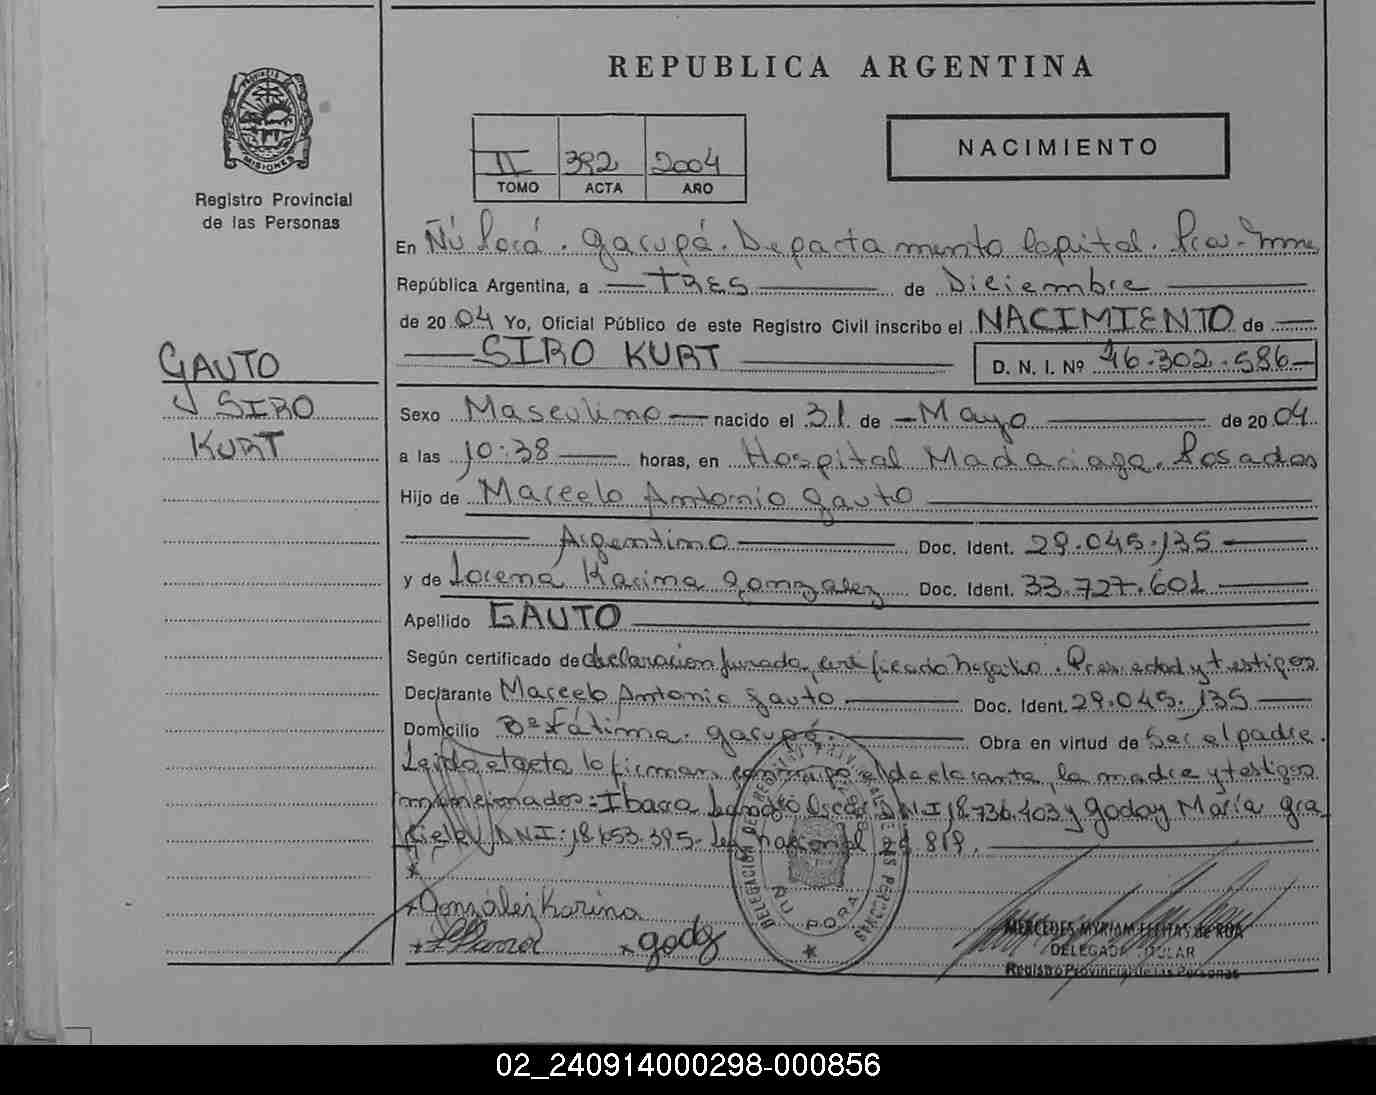 REPUBLICA ARGENTINA
PROVINCIA DE MISIONES
Registro Provincial
de las Personas
II 392 2004
TOMO ACTA AÑO
NACIMIENTO
En Ñú Porá. Garupá. Departamento Capital. Prov.
República Argentina, a TRES de Diciembre
de 2004 Yo, Oficial Público de este Registro Civil inscribo el NACIMIENTO de
SIRO KURT D. N. I. Nº 46.302.586
GAUTO
SIRO
KURT
Sexo Masculino nacido el 31 de Mayo de 2004
a las 10:38 horas, en Hospital Madariaga. Posadas
Hijo de Marcelo Antonio Gauto
Argentino Doc. Ident. 29.045.135
y de Lorena Karina Gonzalez Doc. Ident. 33.727.601
Apellido GAUTO
Según certificado de declaracion jurada, certificado negativo. Pres. edad y testigos
Declarante Marcelo Antonio Gauto Doc. Ident. 29.045.135
Domicilio Bº Fátima. Garupá. Obra en virtud de Ser el padre.
Leida el acta la firman conmigo el declarante, la madre y testigos
mencionados: Ibarra Oscar DNI 18.736.403 y Godoy María Gra
ciela DNI: 18.453.395- Ley nacional 819.
* González Karina
* Godoy
DELEGACION DEL REGISTRO PROVINCIAL DE LAS PERSONAS
ÑU PORA
MERCEDES MYRIAM FLEITAS de ROA
DELEGADA TITULAR
Registro Provincial de las Personas
02_240914000298-000856